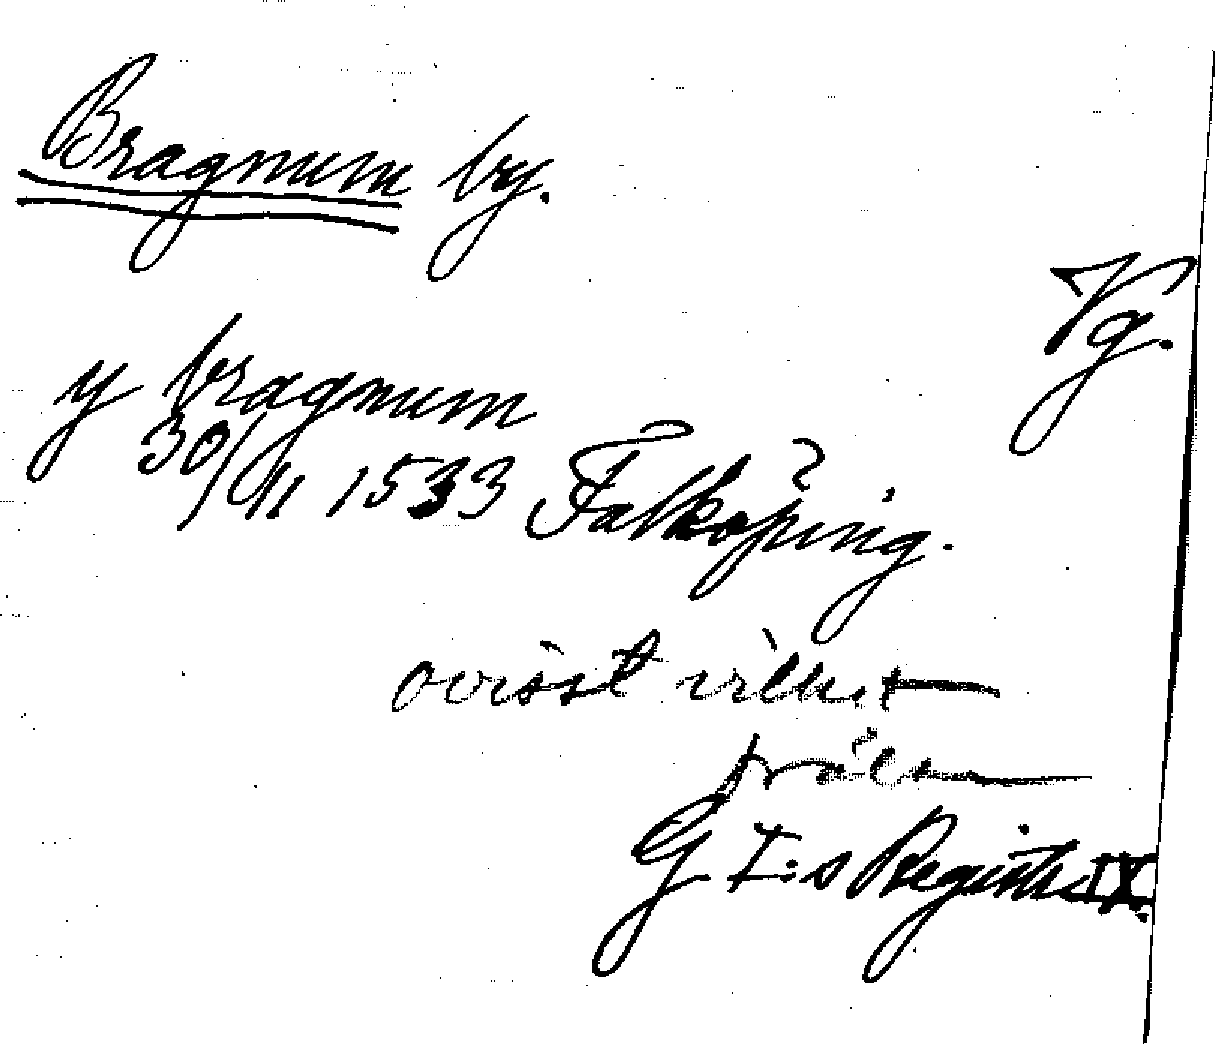 Bragnum by.
Vg.
y bragnum
30/11 1533 Falköping.
ovisst vilket
G I:s Registr. IX.